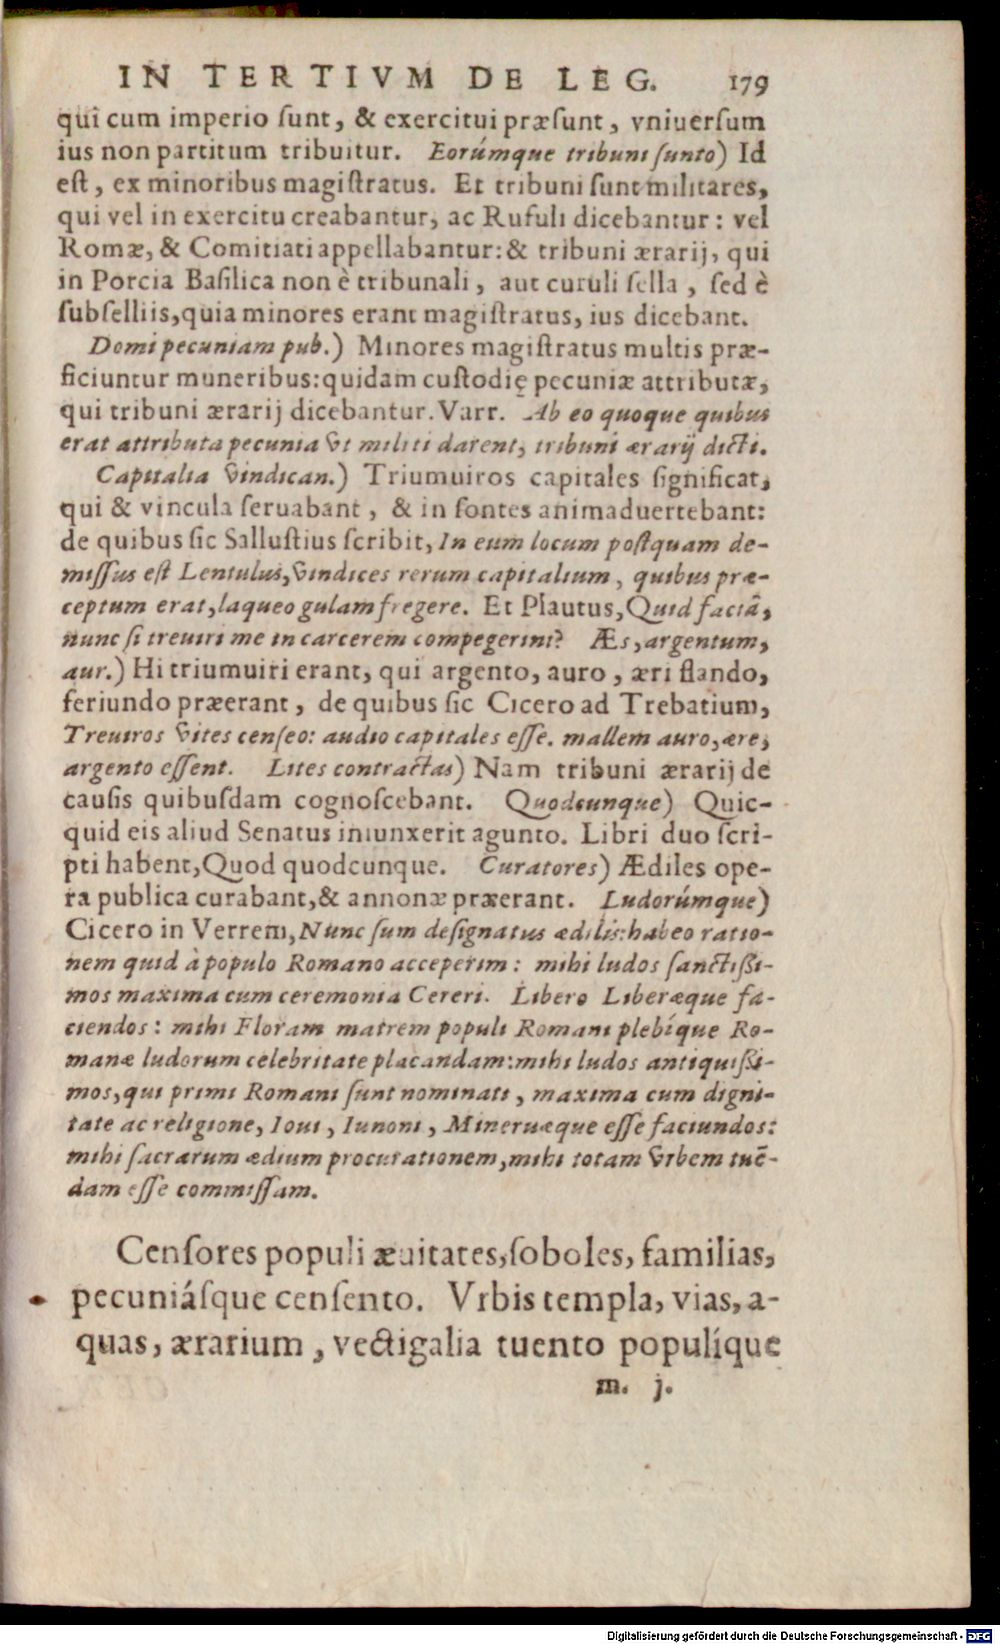 IN TERTIVM DE LEG. 179
qui cum imperio ſunt, & exercitui præſunt, vniuerſum
ius non partitum tribuitur. Eorúmque tribuni ſunto) Id
eſt, ex minoribus magiſtratus. Et tribuni ſunt militares,
qui vel in exercitu creabantur, ac Rufuli dicebantur: vel
Romæ, & Comitiati appellabantur: & tribuni ærarij, qui
in Porcia Baſilica non è tribunali, aut curuli ſella, ſed è
ſubſelliis, quia minores erant magiſtratus, ius dicebant.
Domi pecuniam pub.) Minores magiſtratus multis præ-
ficiuntur muneribus: quidam cuſtodię pecuniæ attributæ,
qui tribuni ærarij dicebantur. Varr. Ab eo quoque quibus
erat attributa pecunia vt militi darent, tribuni ærarij dicti.
Capitalia vindican.) Triumuiros capitales ſignificat,
qui & vincula ſeruabant, & in ſontes animaduertebant:
de quibus ſic Salluſtius ſcribit, In eum locum poſtquam de-
miſſus eſt Lentulus, vindices rerum capitalium, quibus præ-
ceptum erat, laqueo gulam fregere. Et Plautus, Quid faciã,
nunc ſi treuiri me in carcerem compegerint? Æs, argentum,
aur.) Hi triumuiri erant, qui argento, auro, æri flando,
feriundo præerant, de quibus ſic Cicero ad Trebatium,
Treuiros vites cenſeo: audio capitales eſſe. mallem auro, ære,
argento eſſent. Lites contractas) Nam tribuni ærarij de
cauſis quibuſdam cognoſcebant. Quodcunque) Quic-
quid eis aliud Senatus iniunxerit agunto. Libri duo ſcri-
pti habent, Quod quodcunque. Curatores) Ædiles ope-
ra publica curabant, & annonæ præerant. Ludorúmque)
Cicero in Verrem, Nunc ſum deſignatus ædilis: habeo ratio-
nem quid à populo Romano acceperim: mihi ludos ſanctißi-
mos maxima cum ceremonia Cereri. Libero Liberæque fa-
ciendos: mihi Floram matrem populi Romani plebíque Ro-
manæ ludorum celebritate placandam: mihi ludos antiquißi-
mos, qui primi Romani ſunt nominati, maxima cum digni-
tate ac religione, Ioui, Iunoni, Mineruæque eſſe faciundos:
mihi ſacrarum ædium procurationem, mihi totam vrbem tuẽ-
dam eſſe commiſſam.
Cenſores populi æuitates, ſoboles, familias,
pecuniáſque cenſento. Vrbis templa, vias, a-
quas, ærarium, vectigalia tuento populíque
m. j.
Digitalisierung gefördert durch die Deutsche Forschungsgemeinschaft - DFG